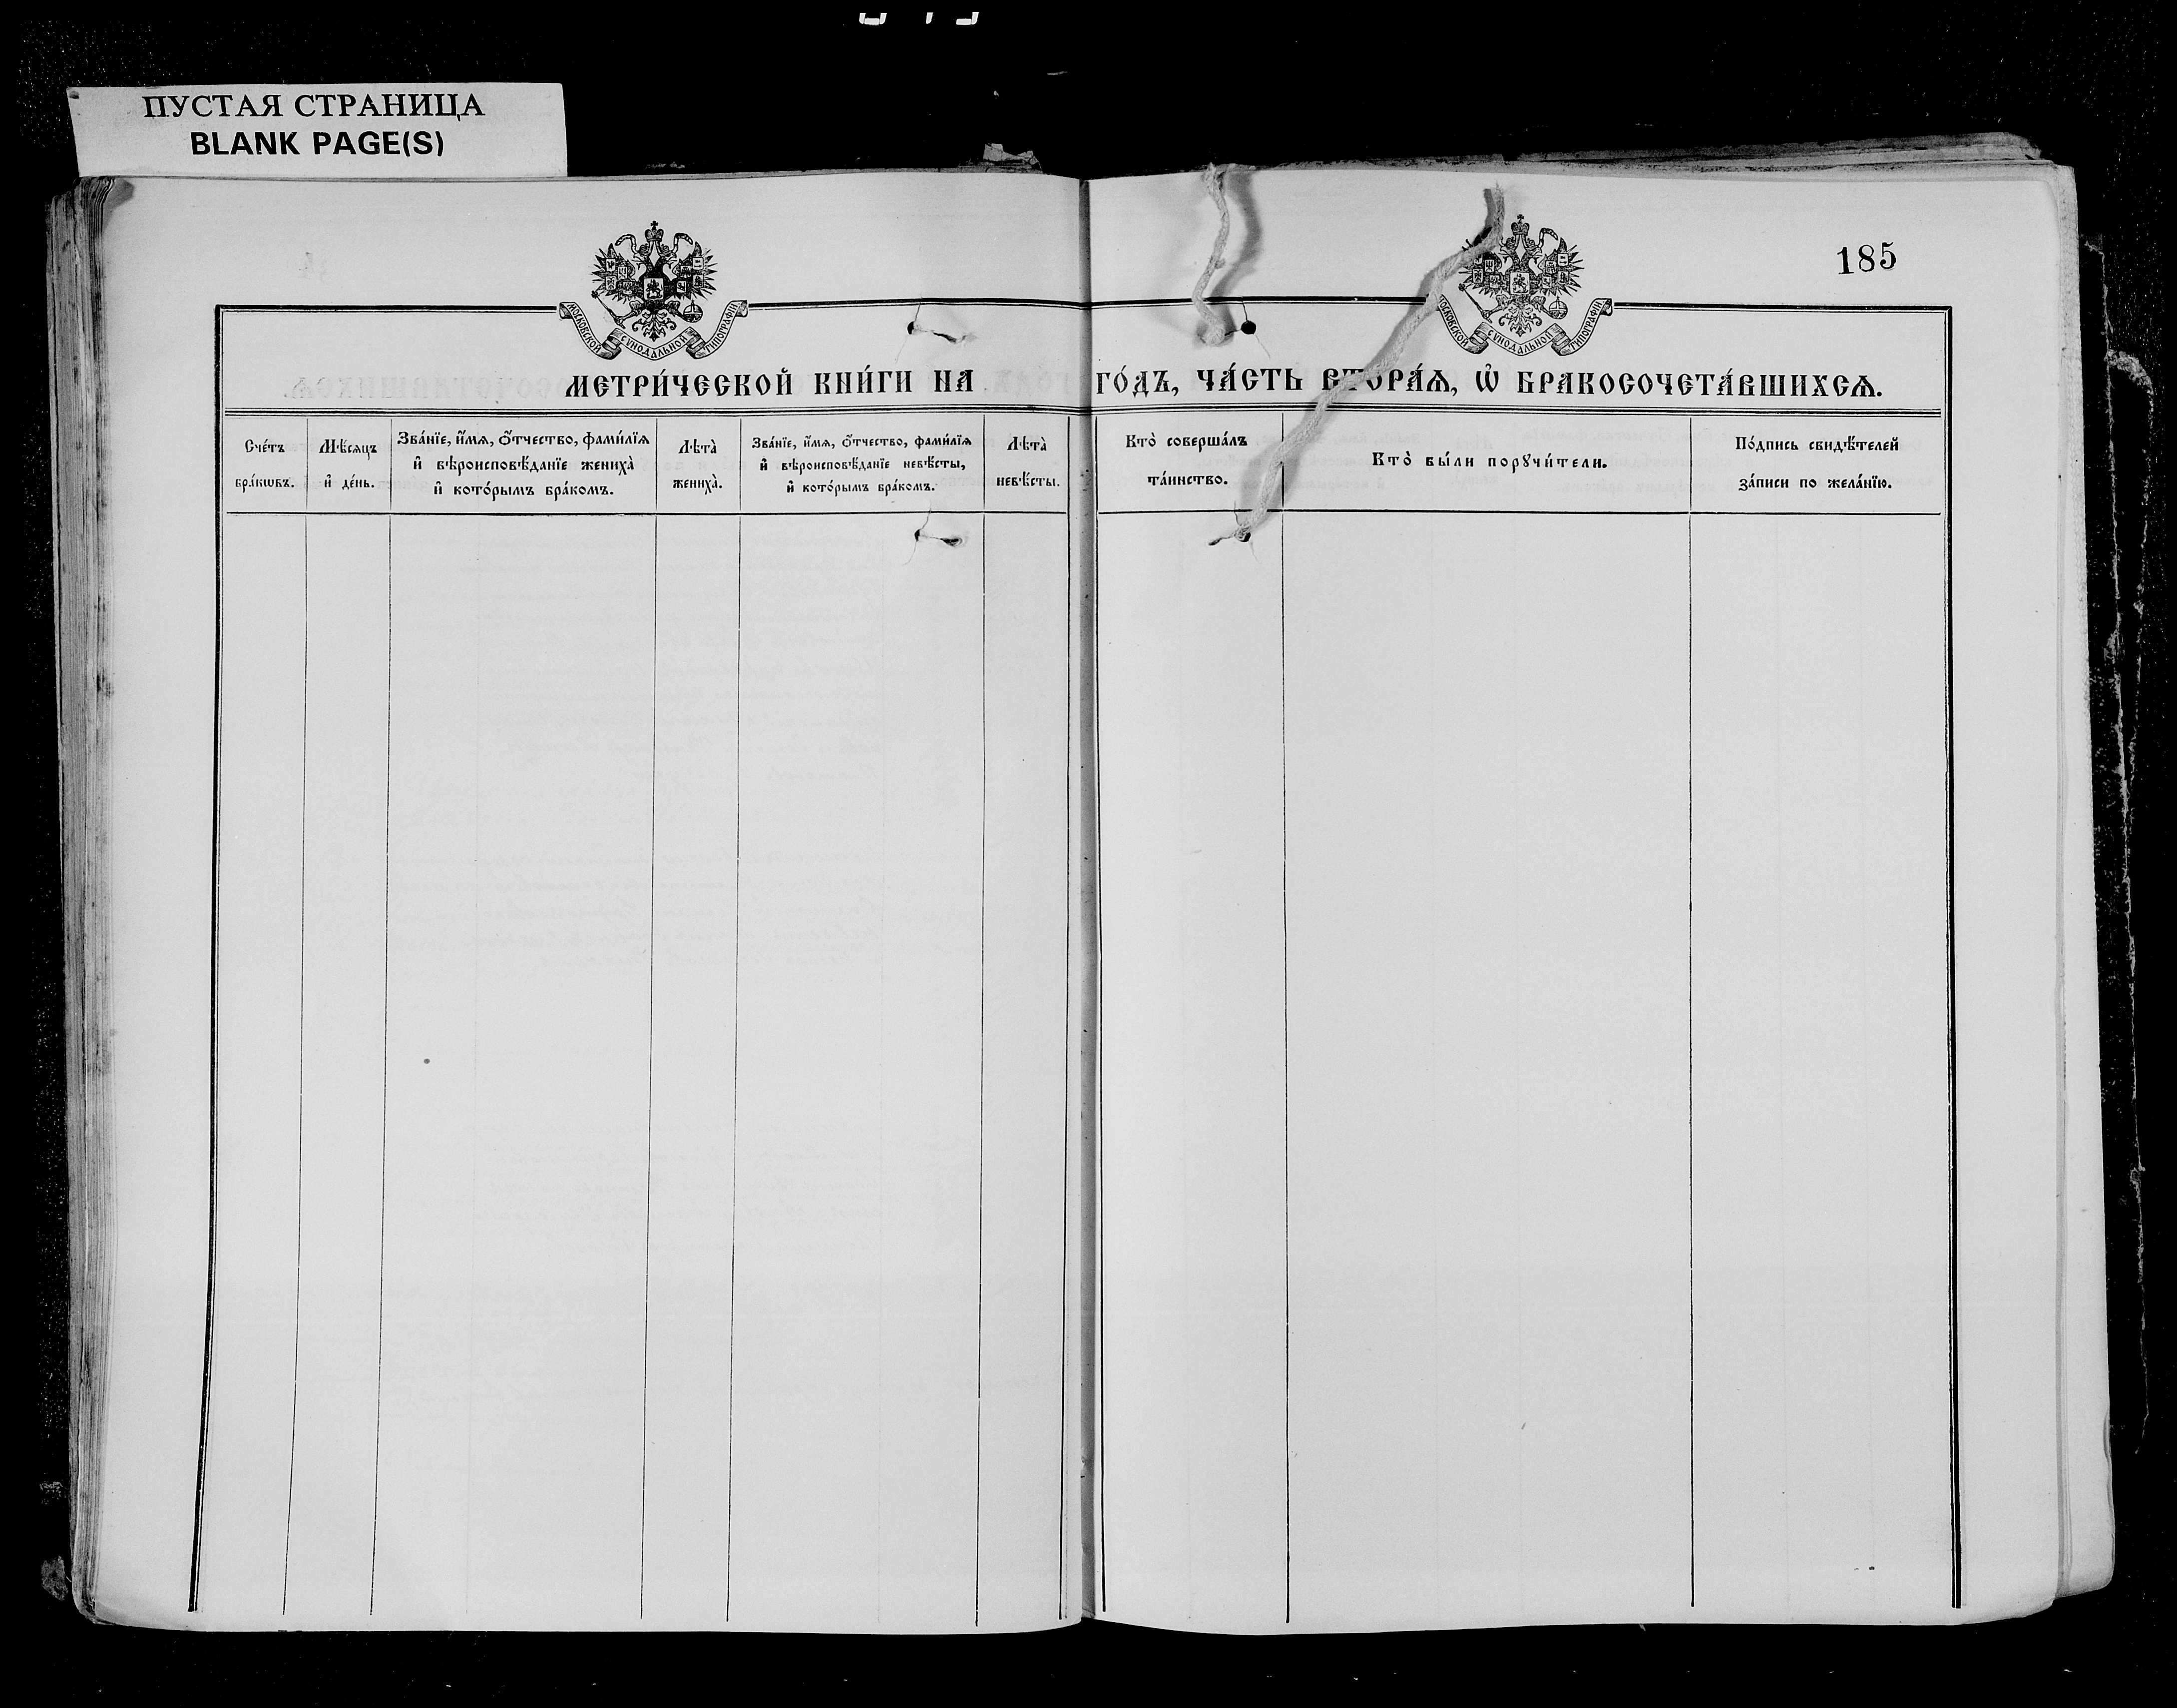 ПУСТАЯ СТРАНИЦА
BLANK PAGE(S)
185
МОСКОВСКОЙ СУНОДАЛЬНОЙ ТИПОГРАФІИ
МОСКОВСКОЙ СУНОДАЛЬНОЙ ТИПОГРАФІИ
МЕТРИ́ЧЕСКОЙ КНИ́ГИ НА ГО́ДЪ, ЧА́СТЬ ВТОРА́Ѧ, Ѽ БРАКОСОЧЕТА́ВШИХСѦ.
Сче́тъ
бра́кѡвъ.
Мѣ́сяцъ
и҆ де́нь.
Зва́нїе, и҆́мѧ, ѻ҆́тчество, фами́лїѧ
и҆ вѣроисповѣ́данїе жениха̀
и҆ кото́рымъ бра́комъ.
Лѣта̀
жениха̀.
Зва́нїе, и҆́мѧ, ѻ҆́тчество, фами́лїѧ
и҆ вѣроисповѣ́данїе невѣ́сты,
и҆ кото́рымъ бра́комъ.
Лѣта̀
невѣ́сты.
Кто̀ соверша́лъ
та́инство.
Кто̀ бы́ли порꙋчи́тели.
По́дпись свидѣ́телей
за́писи по жела́нїю.